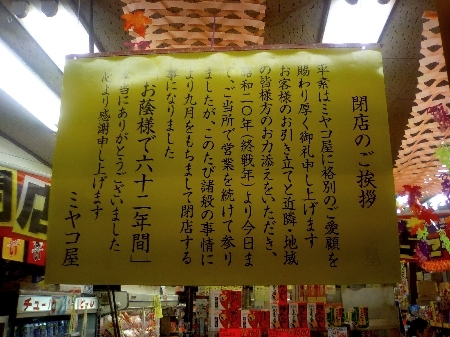 閉店のご挨拶
平素はミヤコ屋に格別のご愛顧を
賜わり厚く御礼申し上げます
お客様のお引き立てと近隣・地域
の皆様方のお力添えをいただき、
昭和二〇年(終戦年)より今日ま
で、ご当所で営業を続けて参り
ましたが、このたび諸般の事情に
より九月をもちまして閉店する
事になりました
「お陰様で六十二年間」
本当にありがとうございました
心より感謝申し上げます
ミヤコ屋